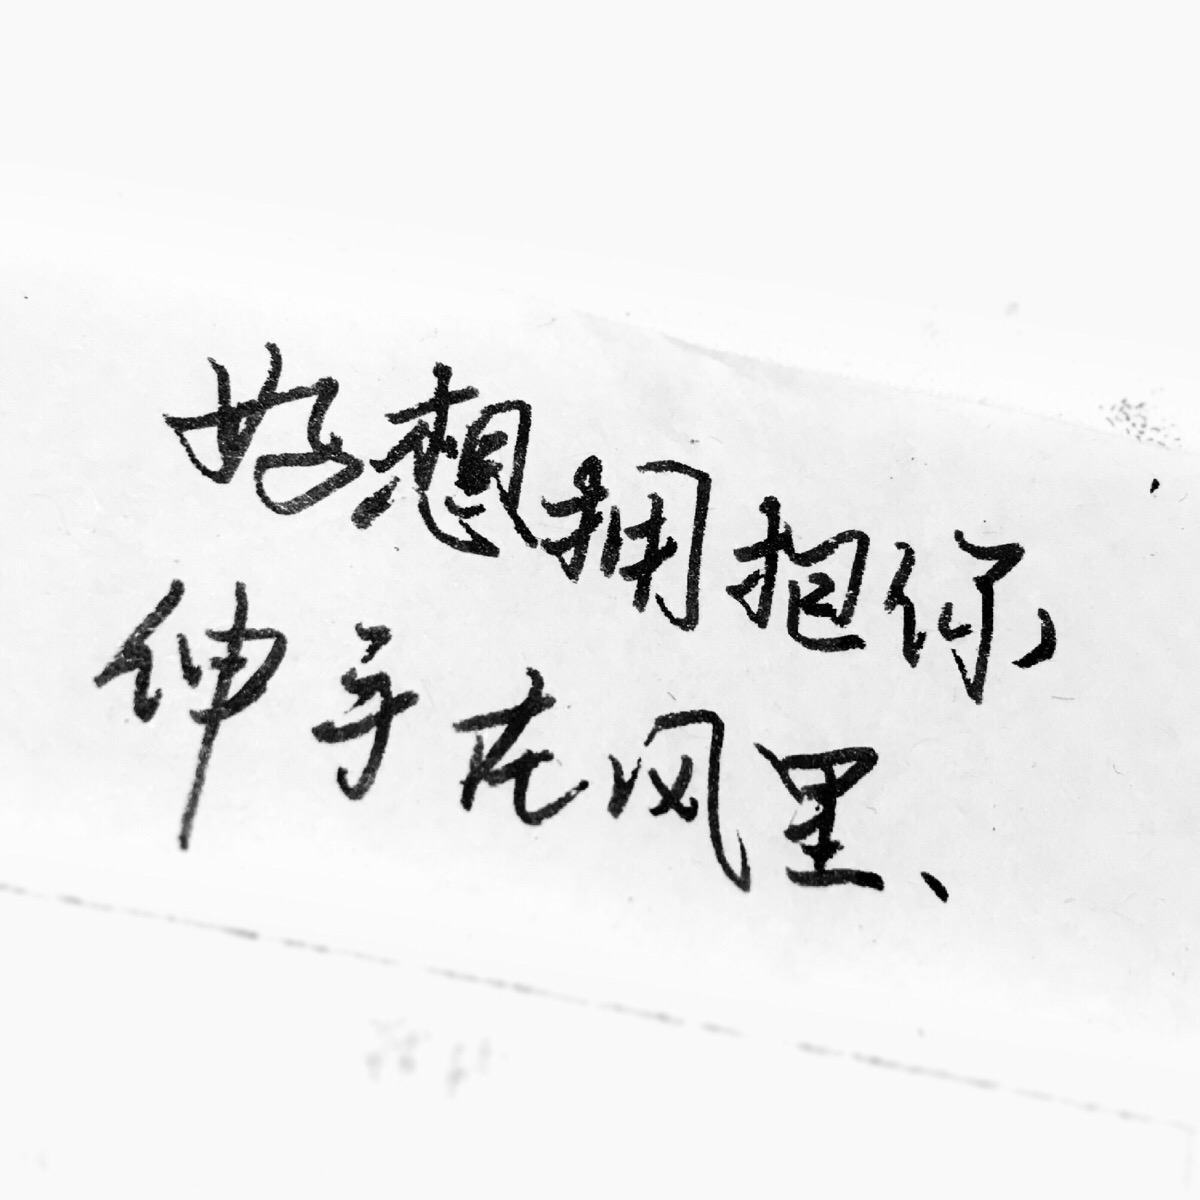 好想拥抱你，
伸手在风里、